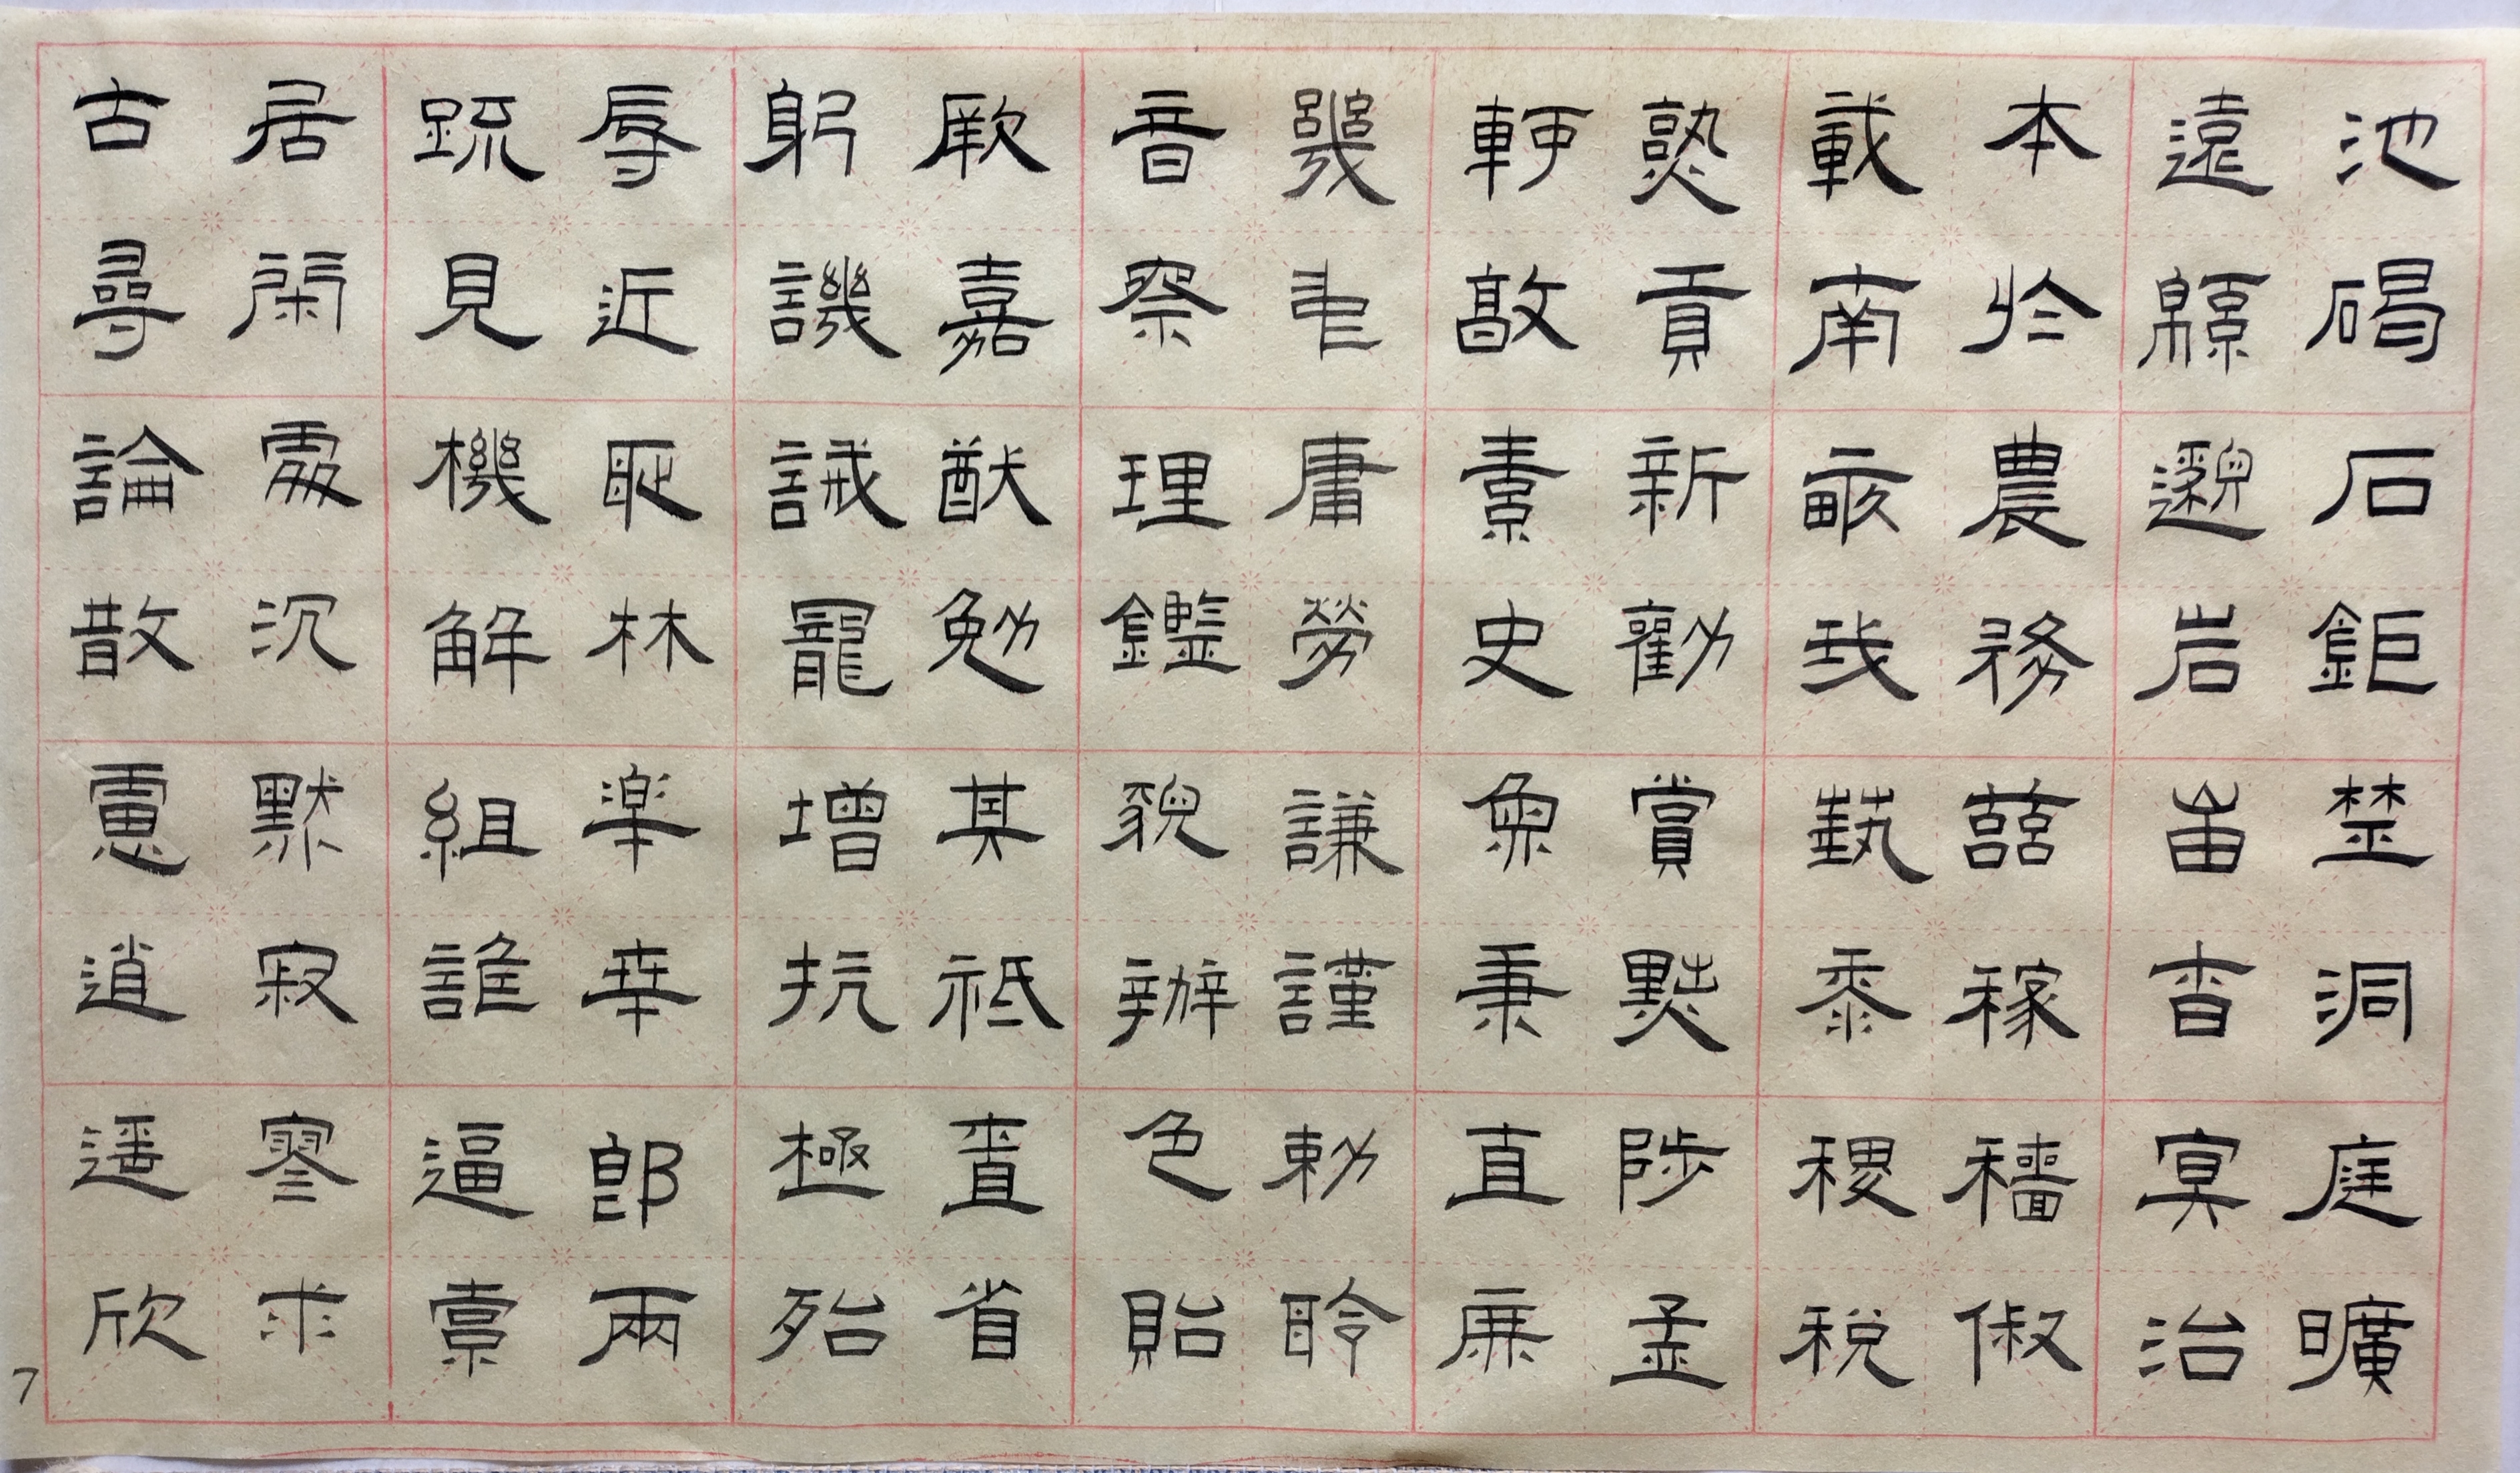 池碣石鉅埜洞庭曠
遠緜邈岩岫杳冥治
本於農務茲稼穡俶
載南畝我藝黍稷稅
熟貢新勸賞黜陟孟
軻敦素史魚秉直廉
幾中庸勞謙謹勅聆
音察理鑑貌辨色貽
厥嘉猷勉其祗植省
躬譏誡寵增抗極殆
辱近耻林皋幸即兩
疏見機解組誰逼索
居閑處沉默寂寥求
古尋論散慮逍遙欣
7